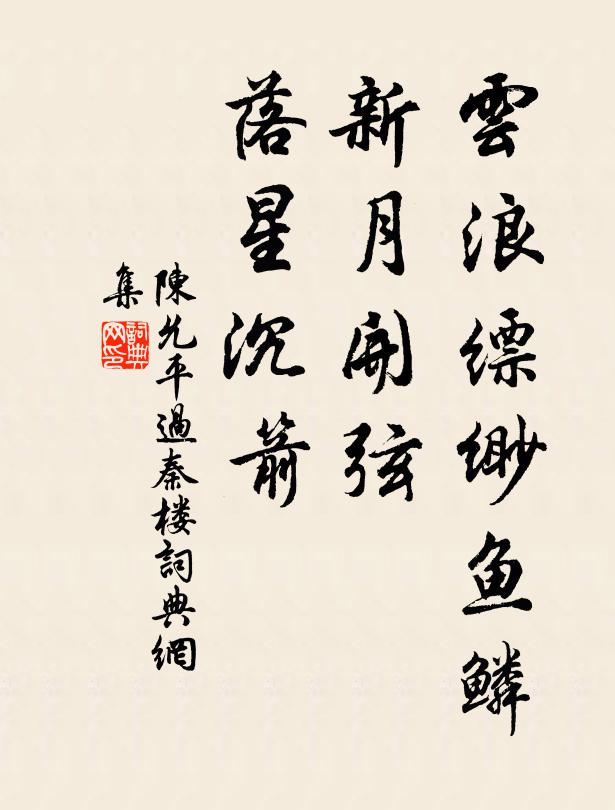 雲浪縹緲鱼鱗
新月開弦
落星沉箭
陳允平過秦楼詞典網
集
詞典网印